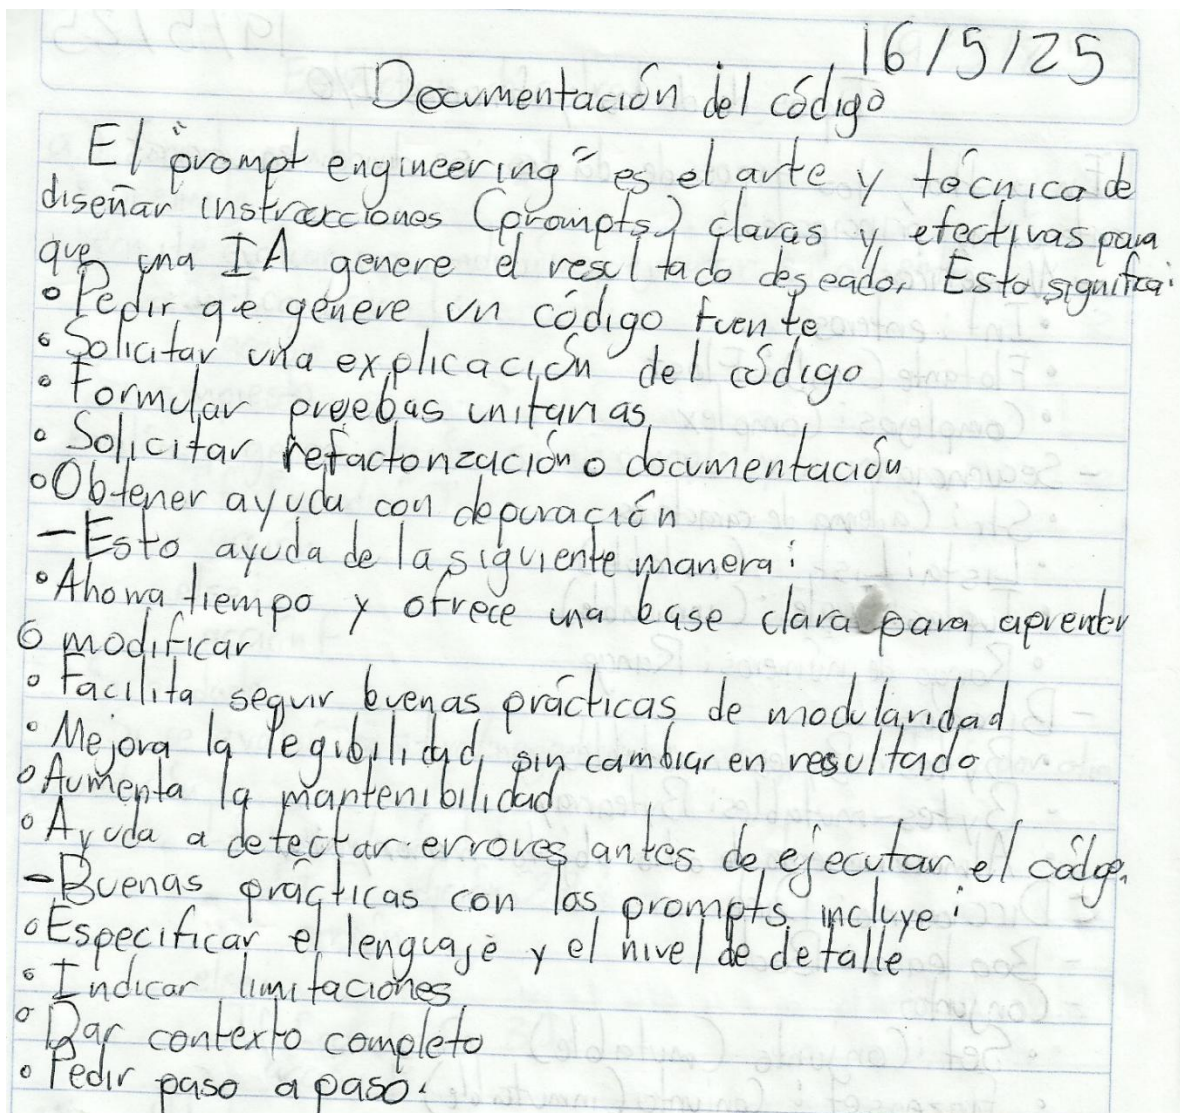 16/5/25
Documentación del código
El "prompt engineering" es el arte y técnica de
diseñar instrucciones (prompts) claras y efectivas para
que una IA genere el resultado deseado. Esto significa:
• Pedir qe genere un código fuente
• Solicitar una explicación del código
• Formular pruebas unitarias
• Solicitar refactorización o documentación
• Obtener ayuda con depuración
- Esto ayuda de la siguiente manera:
• Ahorra tiempo y ofrece una base clara para aprender
o modificar
• Facilita seguir buenas prácticas de modularidad
• Mejora la legibilidad sin cambiar en resultado
• Aumenta la mantenibilidad
• Ayuda a detectar errores antes de ejecutar el código.
- Buenas prácticas con los prompts incluye:
• Especificar el lenguaje y el nivel de detalle
• Indicar limitaciones
• Dar contexto completo
• Pedir paso a paso.